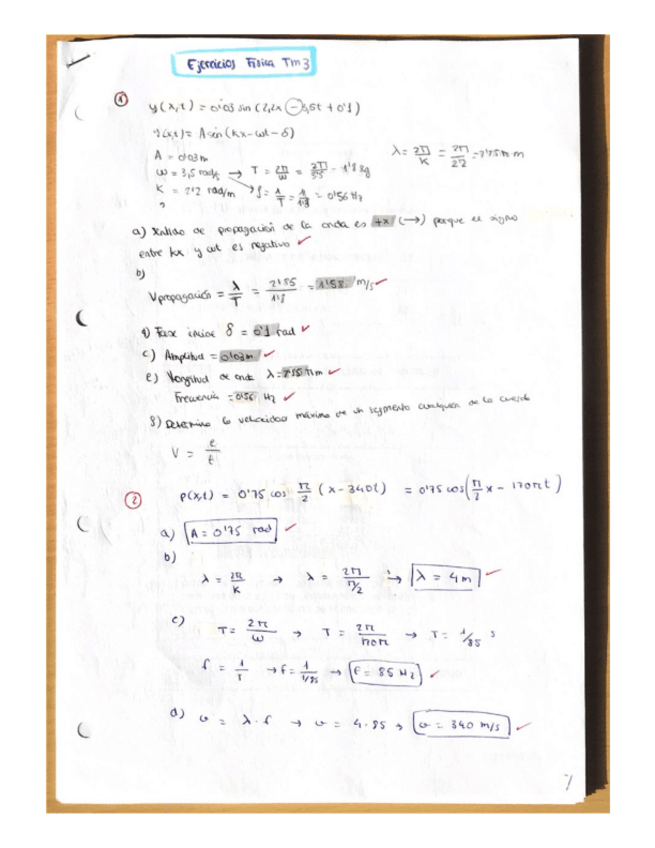 Ejercicios Física Tm 3
1
y(x,t) = 0'03 sin (2,2x - 3,5t + 0'1)
y(x,t) = A sen (kx - ωt - δ)
A = 0'03 m
ω = 3,5 rad/s → T = 2π/ω = 2π/3,5 = 1'8
K = 2'2 rad/m f = 1/T = 1/1'8 = 0'56 Hz
λ = 2π/K = 2π/2'2 = 2'85 m
a) de propagación de la onda es +x (→) porque el signo
entre kx y ωt es negativo ✓
b)
V propagación = λ/T = 2'85/1'8 = 1'58 m/s ✓
Fase δ = 0'1 rad ✓
c) Amplitud = 0'03m ✓
e) Longitud de onda λ = m ✓
Frecuencia = 0'56 Hz ✓
g) Determina la velocidad máxima de un segmento cualquiera de la cuerda
V = e/t
2
P(x,t) = 0'75 cos π/2 (x - 340t) = 0'75 cos (π/2 x - 170πt)
a) A = 0'75 rad ✓
b)
λ = 2π/K → λ = 2π/π/2 → λ = 4m ✓
c)
T = 2π/ω → T = 2π/170π → T = 1/85 s
f = 1/T → f = 1/1/85 → f = 85 Hz ✓
d) v = λ·f → v = 4·85 → v = 340 m/s ✓